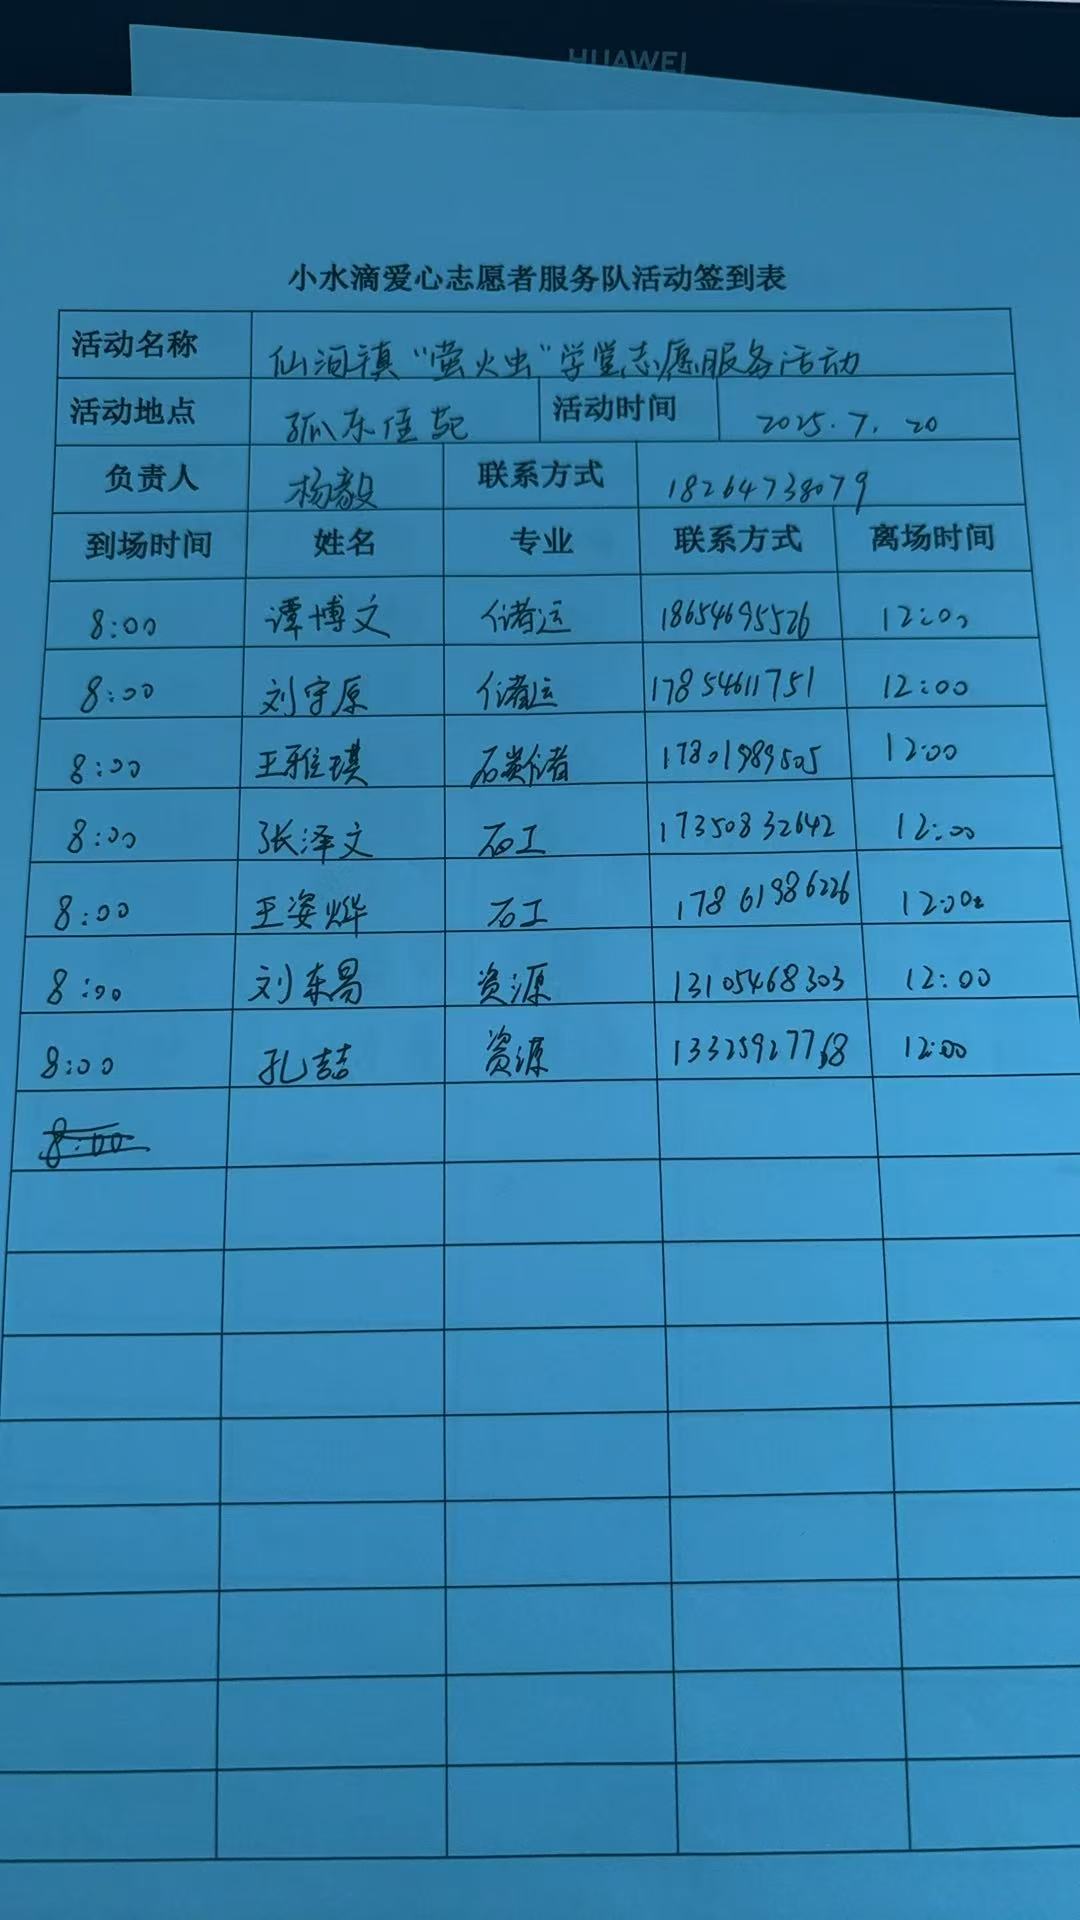 HUAWEI
小水滴爱心志愿者服务队活动签到表
活动名称 仙河镇“萤火虫”学堂志愿服务活动
活动地点 孤东佳苑 活动时间 2025.7.20
负责人 杨毅 联系方式 18264738079
到场时间 姓名 专业 联系方式 离场时间
8:00 谭博文 储运 18654695526 12:00
8:00 刘宇原 储运 17854611751 12:00
8:00 王雅琪 17801989505 12:00
8:00 张泽文 石工 17350832642 12:00
8:00 王姿烨 石工 17861986226 12:00
8:00 刘东昌 资源 13105468303 12:00
8:00 孔喆 资源 13325927768 12:00
8:00